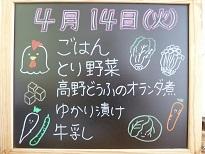 4月14日(火)
ごはん
とり野菜
高野どうふのオランダ煮
ゆかり漬け
牛乳し